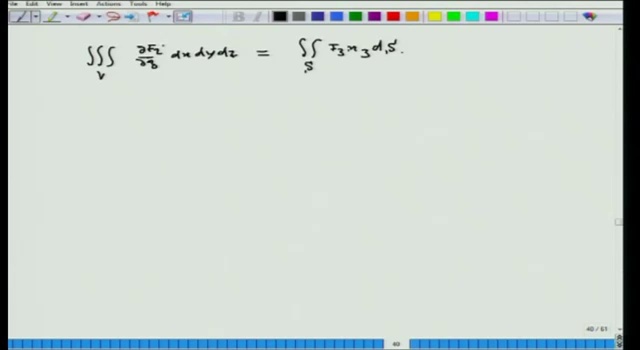 Edit View Insert Actions Tools Help
∭_V ∂F₂/∂z dx dy dz = ∬_S F₃ n₃ dS.
40 / 61
40